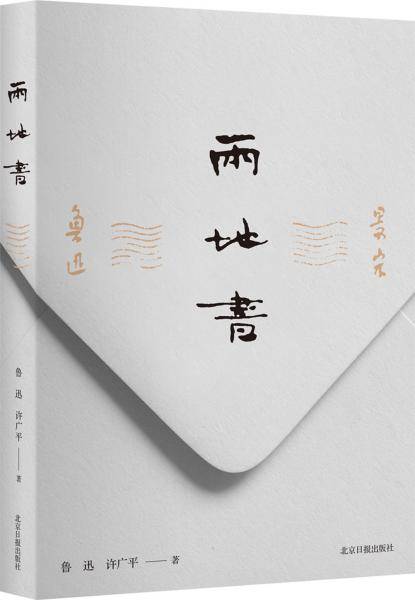 兩地書
鲁迅
景宋
鲁 迅 许广平——著
北京日报出版社
兩地書
鲁 迅 许广平——著
北京日报出版社